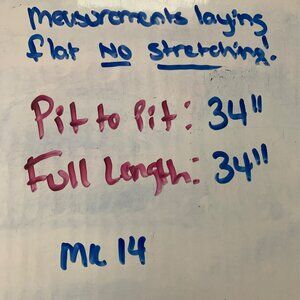 measurements laying
flat NO stretching!
Pit to Pit: 34"
Full Length: 34"
Mk 14